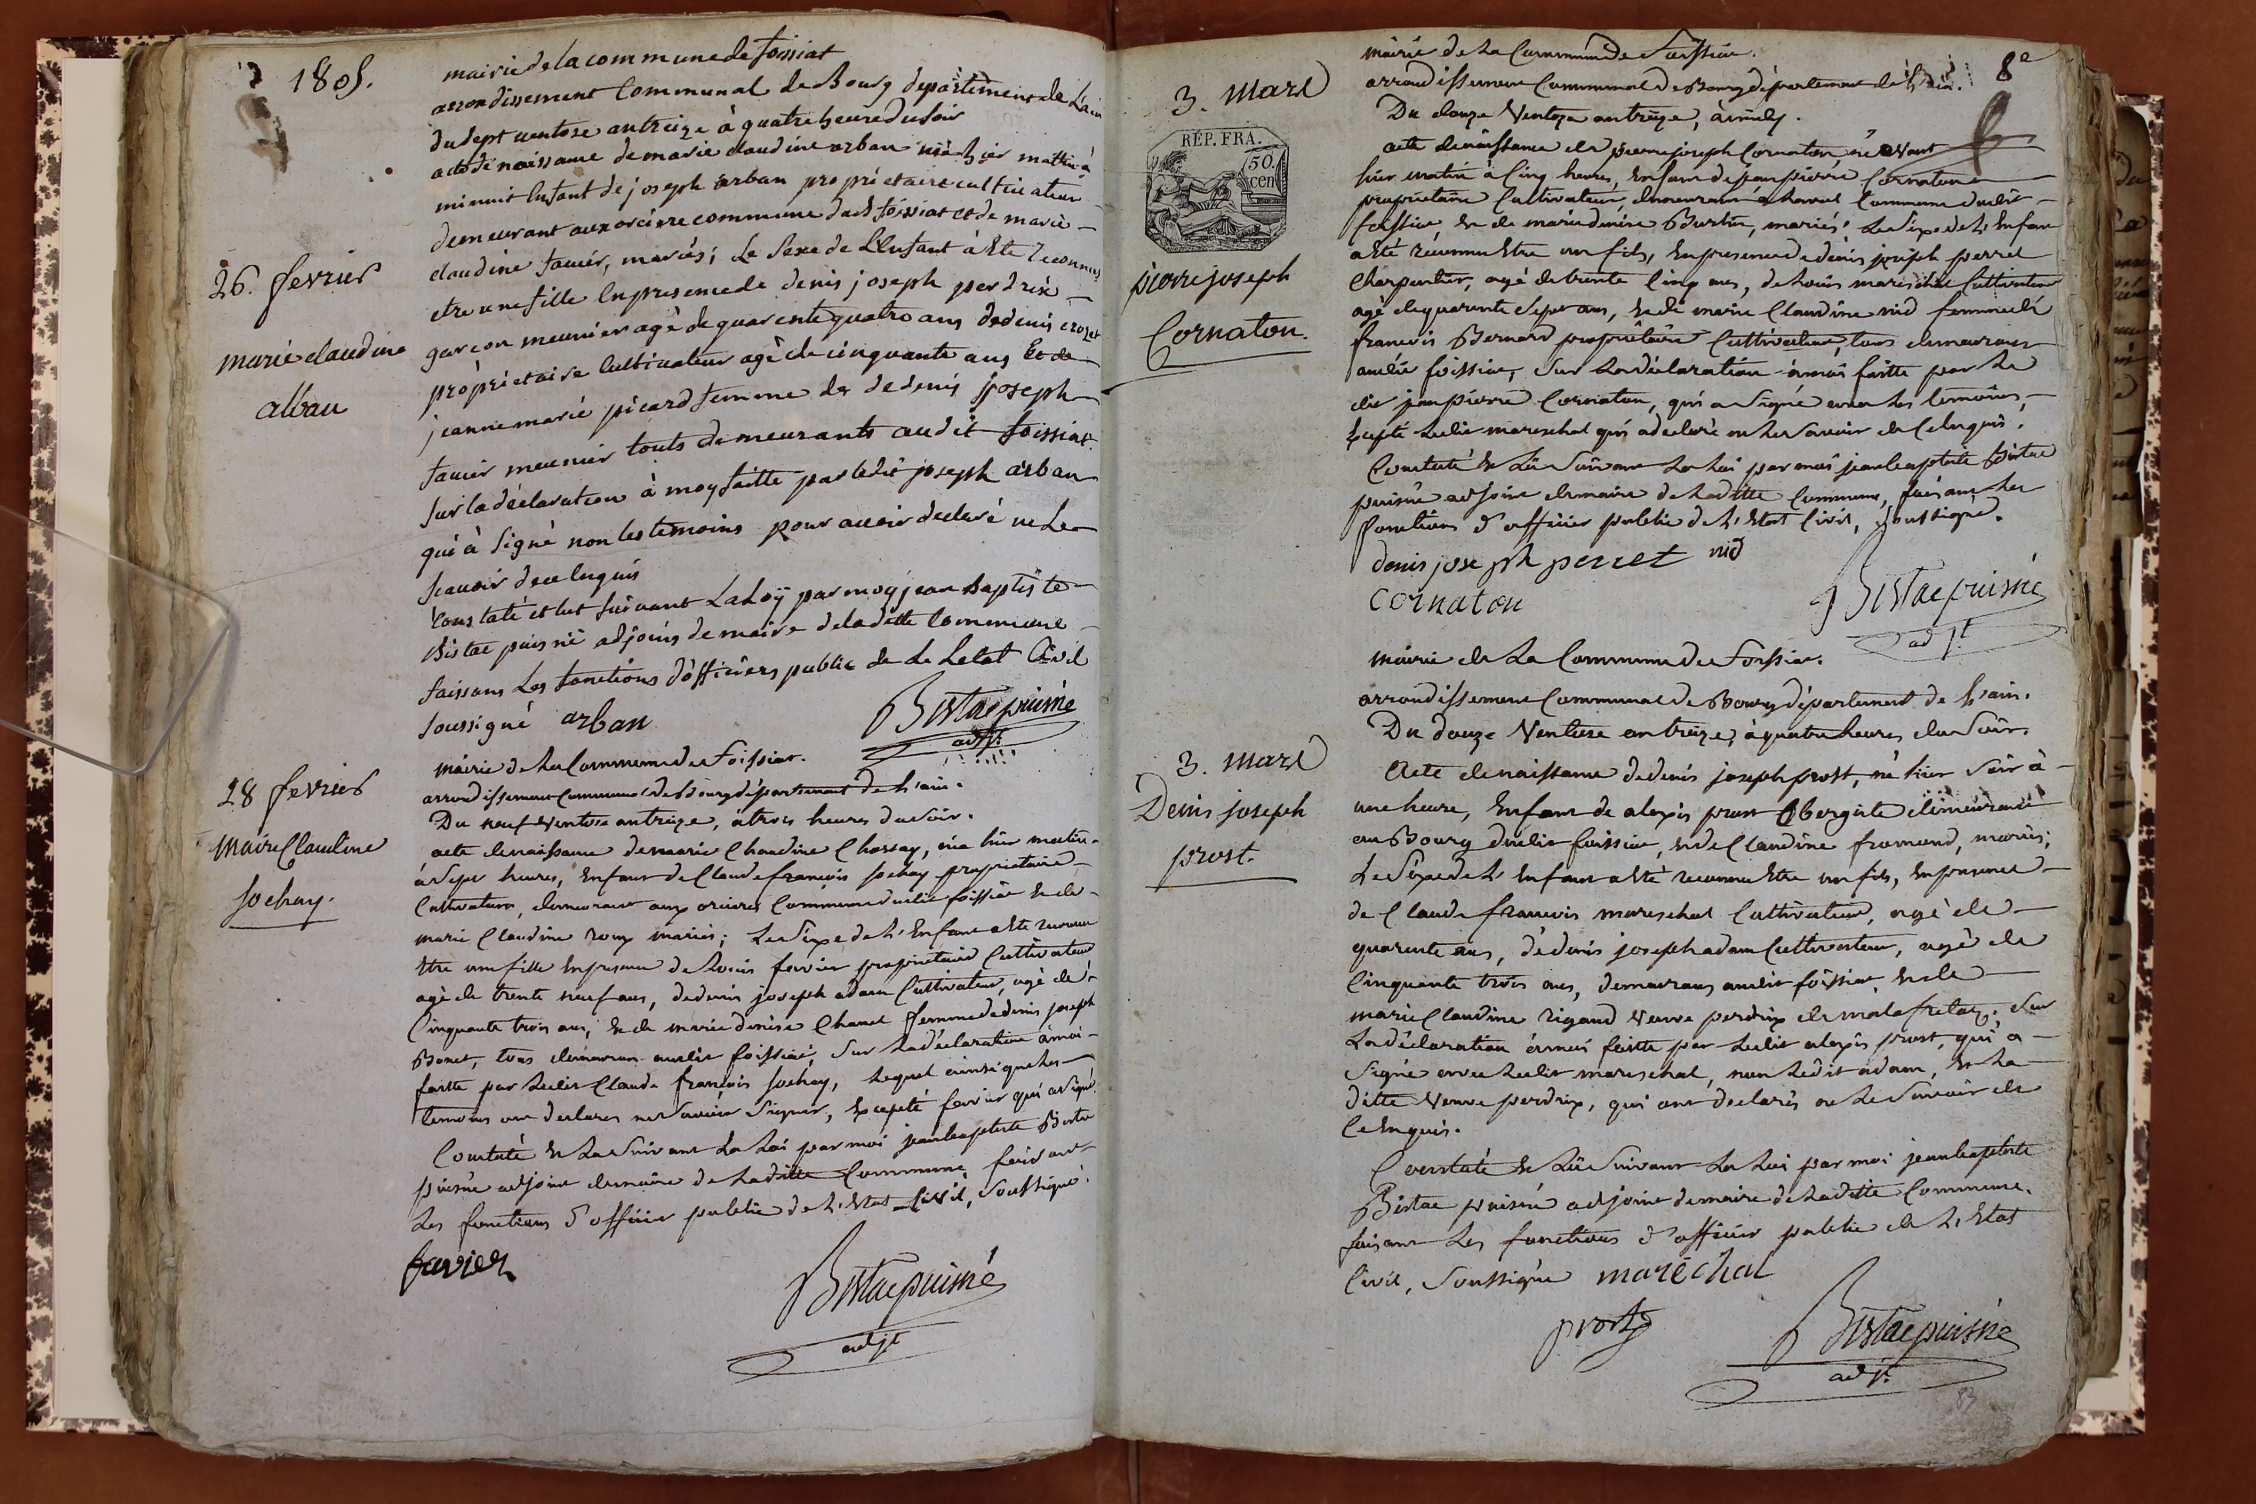 1805.
mairie de la commune de foissiat
arrondissement Communal de Bourg departement de L'ain
du sept ventose an treize à quatre heure du soir
acte de naissance de marie claudine arban née hier mattin à
minuit Enfant de joseph arban proprietaire cultivateur
demeurant aux orcière commune dudt foissiat et de marie
claudine favier, mariés; Le Sexe de L'Enfant à Ete Reconnus
etre une fille En presence de denis joseph perdrix
garcon meunier agé de quarente quatre ans de denis crozet
propriétaire Cultivateur agé de cinquante ans Et de
jeanne marie picard femme de de denis joseph
favier meunier touts demeurants audit foissiat
sur la déclaration à moy faitte par ledit joseph arban
qui à Signé non les temoins pour avoir declaré ne Le
scavoir de ce Enquis
Constaté et lut suivant La Loÿ par moy jean Baptiste
Bistac puisné adjoint de maire de la ditte Commune
faissans Les fonctions d'officiers public de Letat Civil
soussigné arban
Bistac puisné
adjt.
26. fevrier
marie claudine
alban
mairie de La Commune de foissiat.
arrondissement Communal de Bourg département de L'ain.
Du neuf Ventose an treize, à trois heures du soir.
acte de naissance de marie Claudine Chossay, née hier matin
à Sept heures, Enfant de Claude françois sochay propriétaire
Cultivateur, demeurant aux orcières Commune dudit foissiat Et de
marie Claudine roux mariés; Le Sexe de L'Enfant a été reconnu
Etre une fille En presence de Louis favier propriétaire Cultivateur
agé de trente neuf ans, de denis joseph adam Cultivateur, agé de
Cinquante trois ans, Et de marie denise Chanel femme de denis joseph
Bonet, tous demeurans audit foissiat, Sur La déclaration à moi
faitte par Ledit Claude françois sochay, Lequel ainsi que Les
temoins ont declarés ne Savoir Signer, Excepté favier qui a signé
Constaté Et Lu Suivant La Loi par moi jean baptiste Bistac
puisné adjoint de maire de Laditte Commune, faisant
Les fonctions d'officier public de L'Etat Civil, Soussigné.
favier
Bistac puisné
adjt
28 fevrier
Marie Claudine
Sochay.
8e
mairie de La Commune de Foissiat.
arrondissement Communal de Bourg département de L'ain.
Du douze Ventoze an treize, à midy.
acte de naissance de pierre joseph Cornaton né avant
hier matin à Cinq heures, Enfant de jean pierre Cornaton
propriétaire Cultivateur, demeurant Commune dudit
foissiat Et de marie denise Burtin, mariés; Le Sexe de L'Enfant
a été reconnu Etre un fils, En presence de denis joseph perret
Charpentier, agé de trente Cinq ans, de Louis mareschal Cultivateur
agé de quarante Sept ans, Et de marie Claudine nid femme de
françois Bernard propriétaire Cultivateur, tous demeurans
audit foissiat, Sur La déclaration à moi faitte par Le
dit jean pierre Cornaton, qui a Signé avec Les témoins,
Excepté Ledit mareschal qui a declaré ne Le Savoir de Ce Enquis.
Constaté Et Lu Suivant La Loi par moi jean baptiste Bistac
puisné adjoint de maire de Laditte Commune, faisant Les
fonctions d'officier public de L'Etat Civil, Soussigné.
denis joseph perret nid
cornaton
Bistac puisné
adjt.
3. Mars
RÉP. FRA.
50.
cen
pierre joseph
Cornaton.
mairie de La Commune de Foissiat.
arrondissement Communal de Bourg département de L'ain.
Du douze Ventose an treize, à quatre heures du Soir.
Acte de naissance de denis joseph prost, né hier Soir à
une heure, Enfant de alexis prost Obergiste demeurant
au Bourg dudit foissiat, Et de Claudine fromand, mariés;
Le Sexe de L'Enfant a été reconnu Etre un fils, En presence
de Claude françois mareschal Cultivateur, agé de
quarente ans, de denis joseph adam Cultivateur, agé de
Cinquante trois ans, demeurans audit foissiat Et de
marie Claudine rigaud Veuve perdrix de malafretaz. Sur
La déclaration à moi faitte par Ledit alexis prost, qui a
Signé avec Ledit mareschal, non Ledit adam, Et La
ditte Veuve perdrix, qui ont declarés ne Le Savoir de
Ce Enquis.
Constaté Et Lu Suivant La Loi par moi jean baptiste
Bistac puisné adjoint de maire de Laditte Commune.
faisant Les fonctions d'officier public de L'Etat
Civil, Soussigné maréchal
prost
Bistac puisné
adjt.
3. Mars
Denis joseph
prost.
83